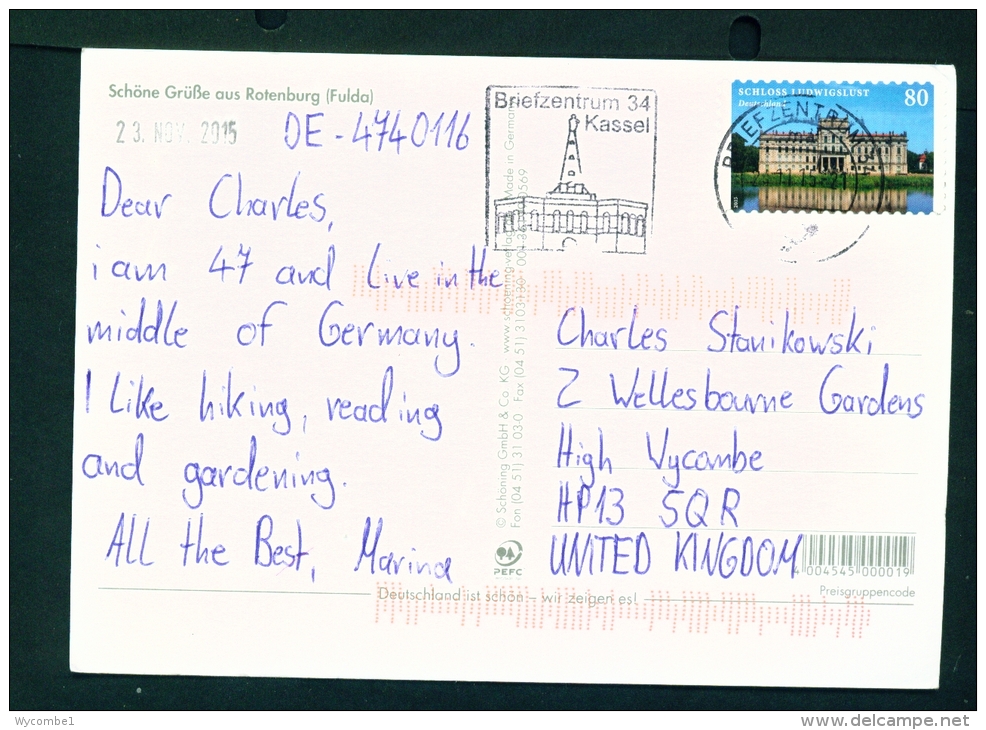 Schöne Grüße aus Rotenburg (Fulda)
23. NOV. 2015
DE-4740116
Briefzentrum 34
Kassel
SCHLOSS LUDWIGSLUST 80
Deutschland
BRIEFZENTRUM
Dear Charles,
i am 47 and live in the
middle of Germany.
I like hiking, reading
and gardening.
All the Best, Marina
© Schöning GmbH & Co. KG · www.schoening-verlag Made in Germany
Fon (04 51) 31 03-0 Fax (04 51) 3103
PEFC
Charles Stanikowski
2 Wellesbourne Gardens
High Wycombe
HP13 5QR
UNITED KINGDOM
4 004545 000019
Preisgruppencode
Deutschland ist schön – wir zeigen es!
Wycombe1
www.delcampe.net